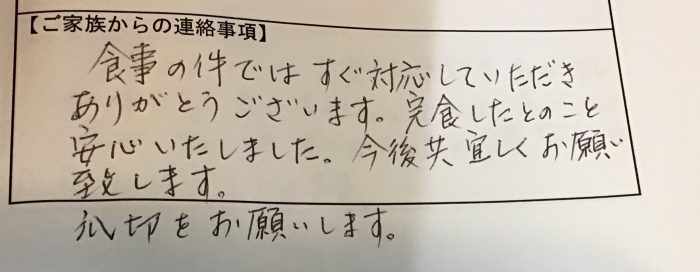 【ご家族からの連絡事項】
食事の件ではすぐ対応していただき
ありがとうございます。完食したとのこと
安心いたしました。今後共宜しくお願い
致します。
爪切をお願いします。